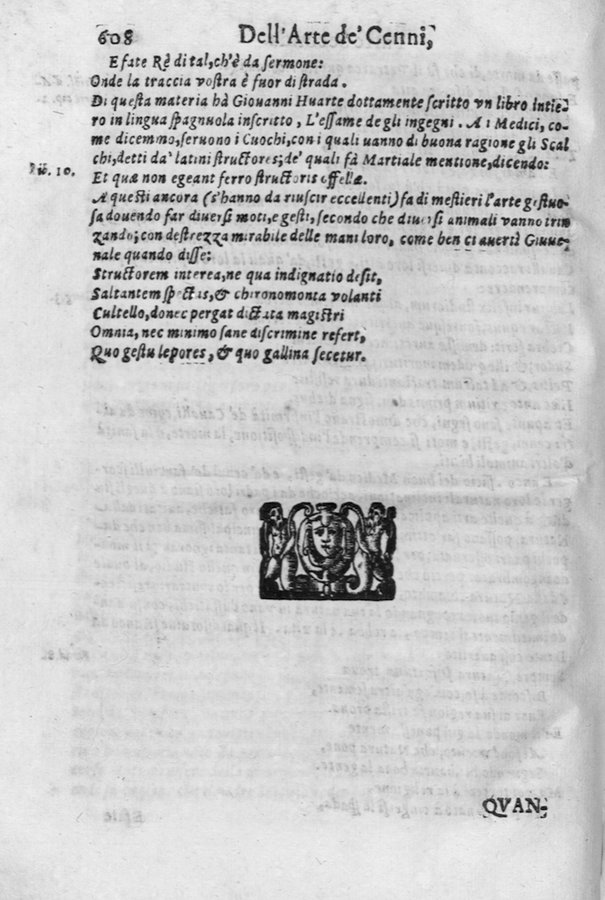 608 Dell'Arte de' Cenni,
E fate Rè di tal, ch'è da sermone:
Onde la traccia vostra è fuor di strada.
Di questa materia hà Giouanni Huarte dottamente scritto vn libro intie-
ro in lingua spagnuola inscritto, L'essame de gli ingegni. A i Medici, co-
me dicemmo, seruono i Cuochi, con i quali uanno di buona ragione gli Scal
chi, detti da' latini structores; de' quali fà Martiale mentione, dicendo:
10.
Et quæ non egeant ferro structoris offellæ.
A questi ancora (s'hanno da riuscir eccellenti) fa di mestieri l'arte gestuo-
sa douendo far diuersi moti, e gesti, secondo che diuersi animali vanno trin
zando; con destrezza mirabile delle mani loro, come ben ci auertì Giuue-
nale quando disse:
Structorem interea, ne qua indignatio desit,
Saltantem spectas, & chironomonta volanti
Cultello, donec pergat dictata magistri
Omnia, nec minimo sane discrimine refert,
Quo gestu lepores, & quo gallina secetur.
QVAN-